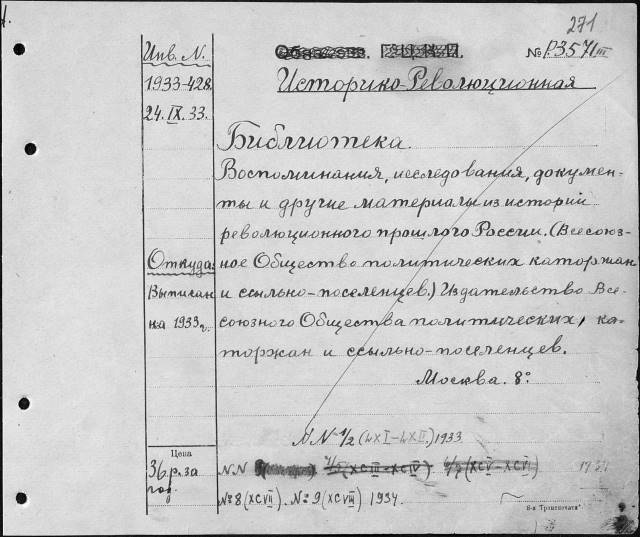 271
Инв. N.
1933-428
24. IX. 33.
№ Р.3571 III
Историко-Революционная
Библиотека.
Воспоминания, исследования, докумен-
ты и другие материалы из историй
революционного прошлого России. (Всесоюз-
ное Общество политических каторжан
и ссыльно-поселенцев.) Издательство Все-
союзного Общества политических, ка-
торжан и ссыльно-поселенцев.
Москва. 8°
Откуда:
Выписан
на 1933г.
N.N 1/2 (LXI-LXII) 1933
Цена
36 р. за
год.
N.N (XCIII-XCIV) (XCV-XCVI)
№ 8 (XCVII). № 9 (XCVIII) 1934.
8-я "Транспечати"